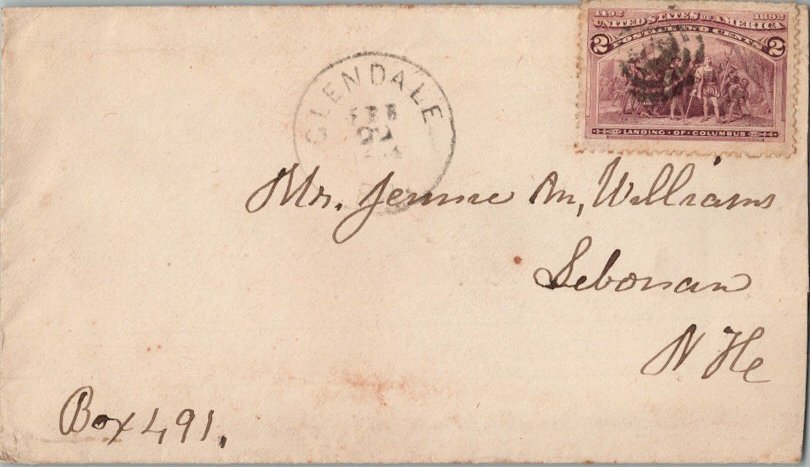 1492 UNITED STATES OF AMERICA 1892
2 POSTAGE TWO CENTS 2
LANDING OF COLUMBUS
GLENDALE
FEB
Mr. Jennie M, Williams
Lebonan
N He
Box 491.